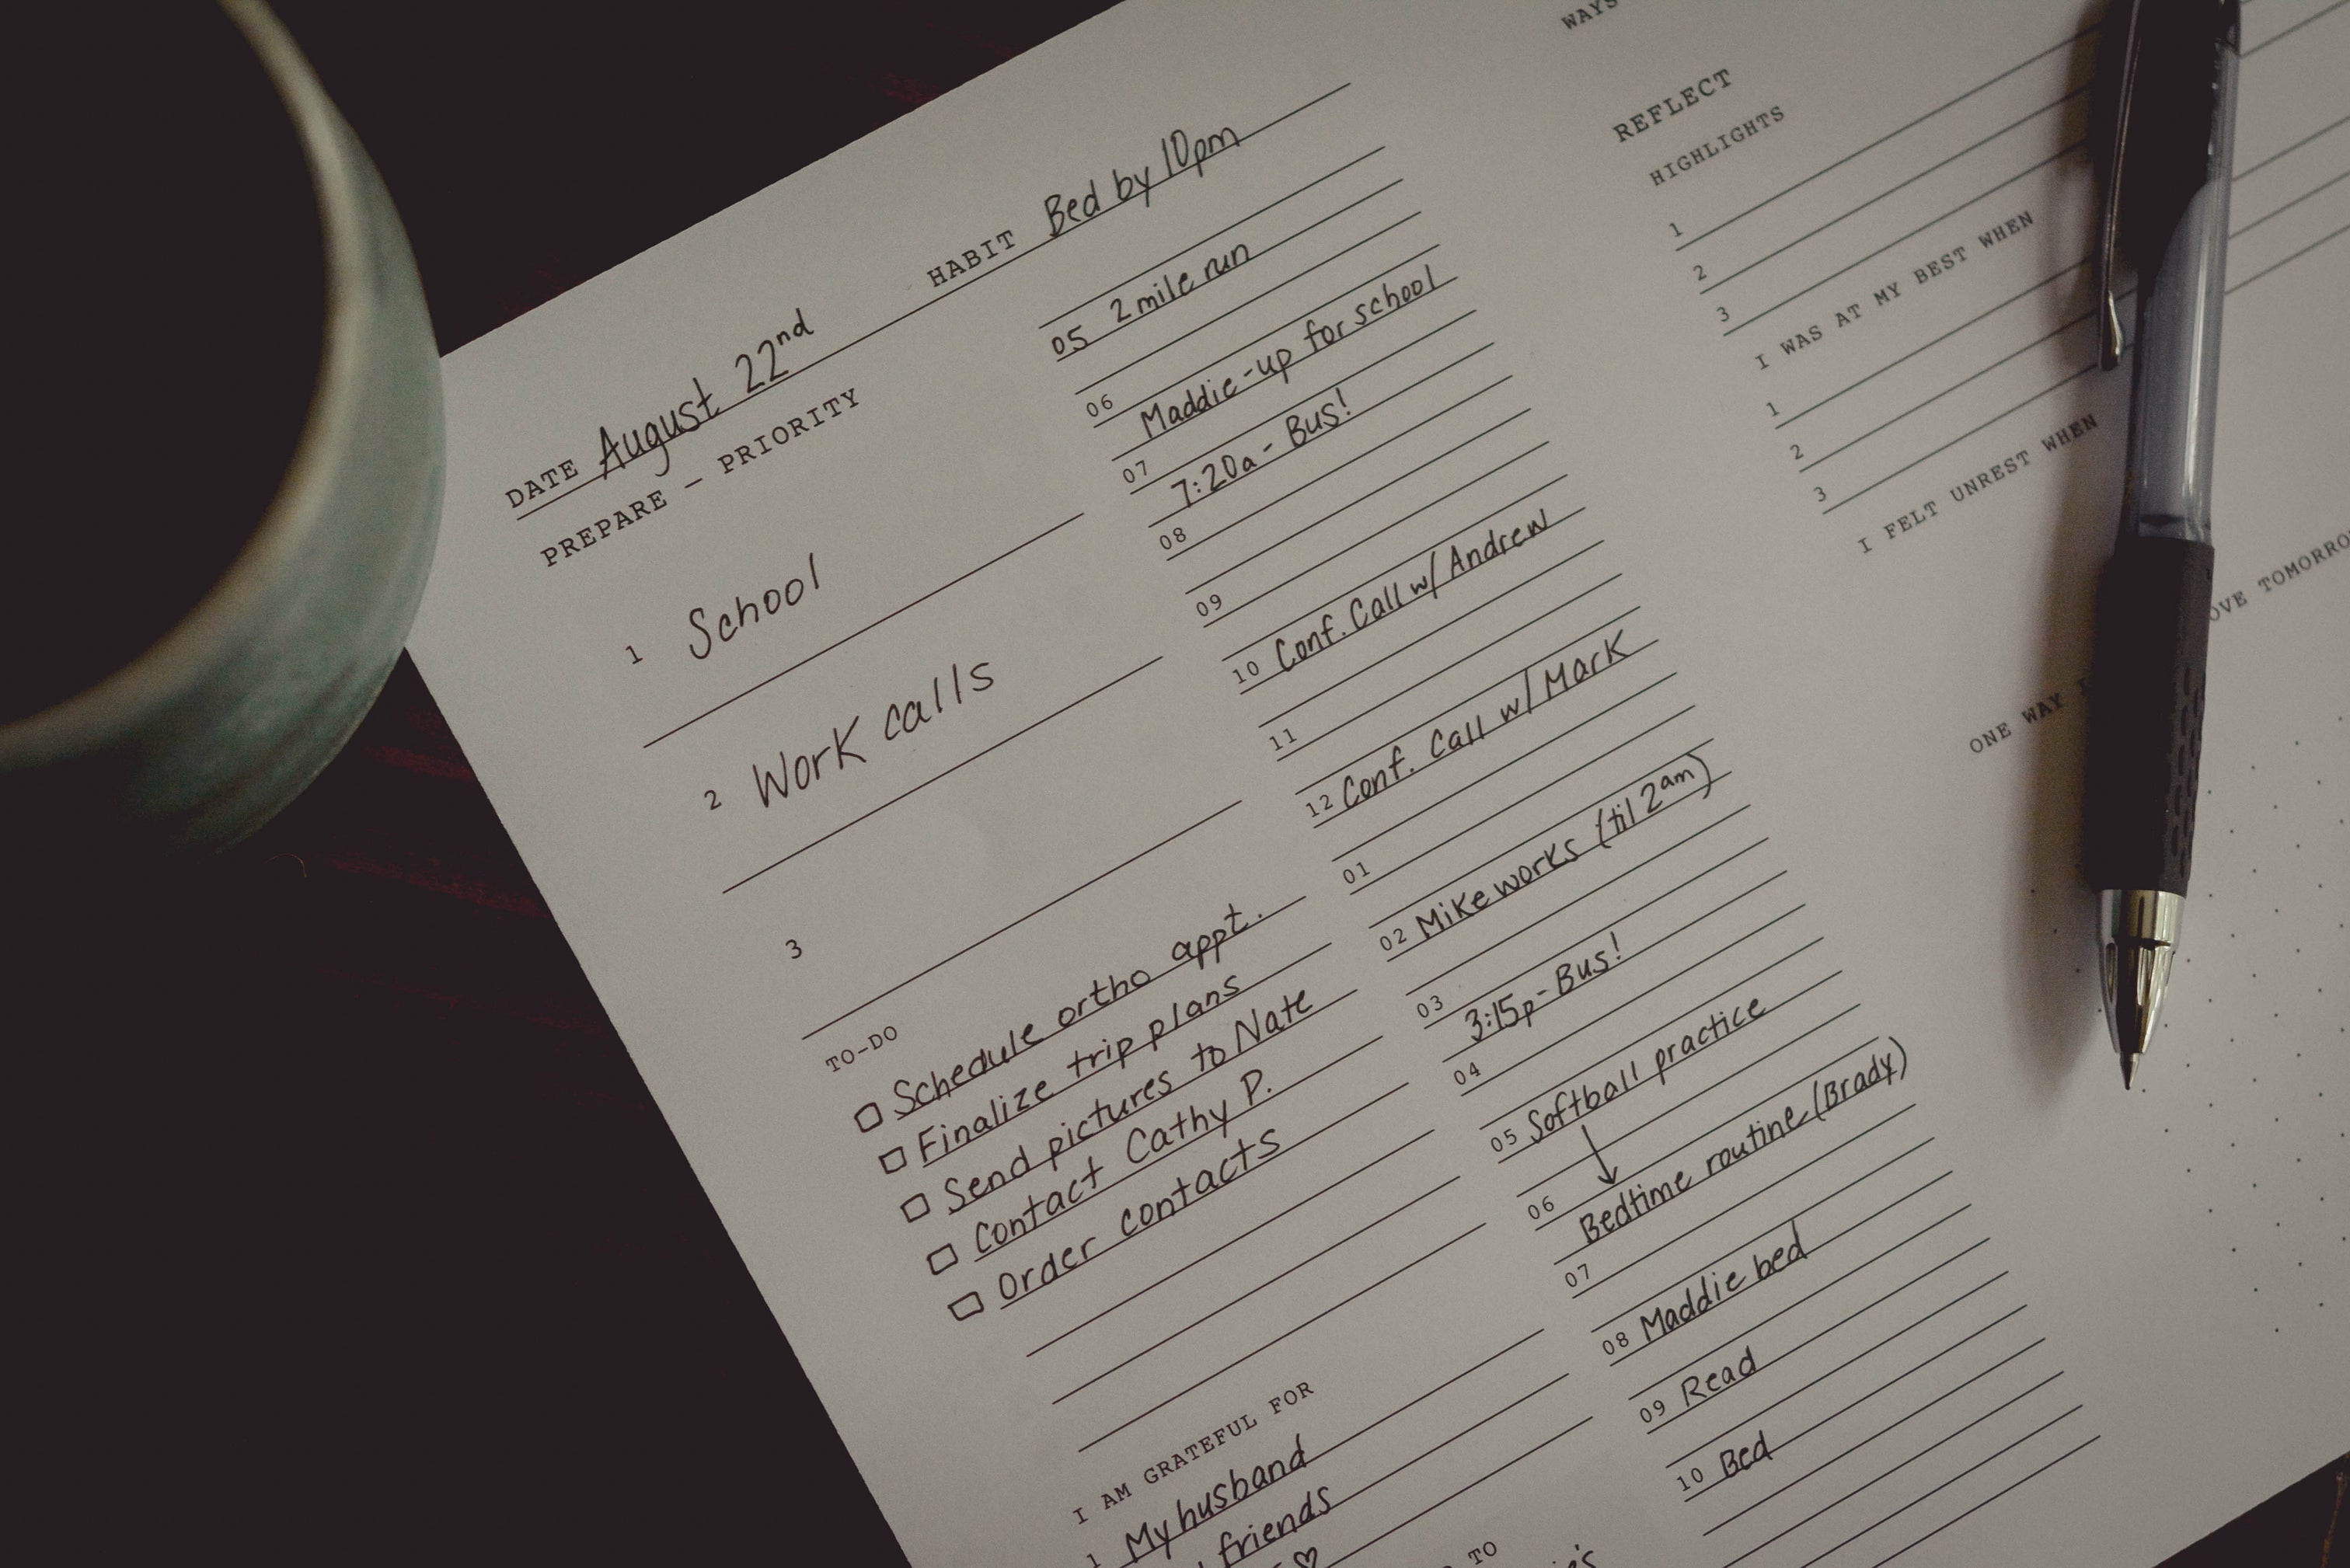 DATE August 22nd
HABIT Bed by 10pm
PREPARE - PRIORITY
1 School
2 Work calls
3
TO-DO
Schedule ortho appt.
Finalize trip plans
Send pictures to Nate
Contact Cathy P.
Order contacts
I AM GRATEFUL FOR
1 My husband
friends
TO
05 2 mile run
06
Maddie-up for school
07
7:20a - Bus!
08
09
10 Conf. Call w/ Andrew
11
12 Conf. Call w/ Mark
01
02 Mike works (til 2am)
03
3:15p - Bus!
04
05 Softball practice
06
Bedtime routine (Brady)
07
08 Maddie bed
09 Read
10 Bed
WAYS
REFLECT
HIGHLIGHTS
1
2
3
I WAS AT MY BEST WHEN
1
2
3
I FELT UNREST WHEN
ONE WAY
TOMORRO